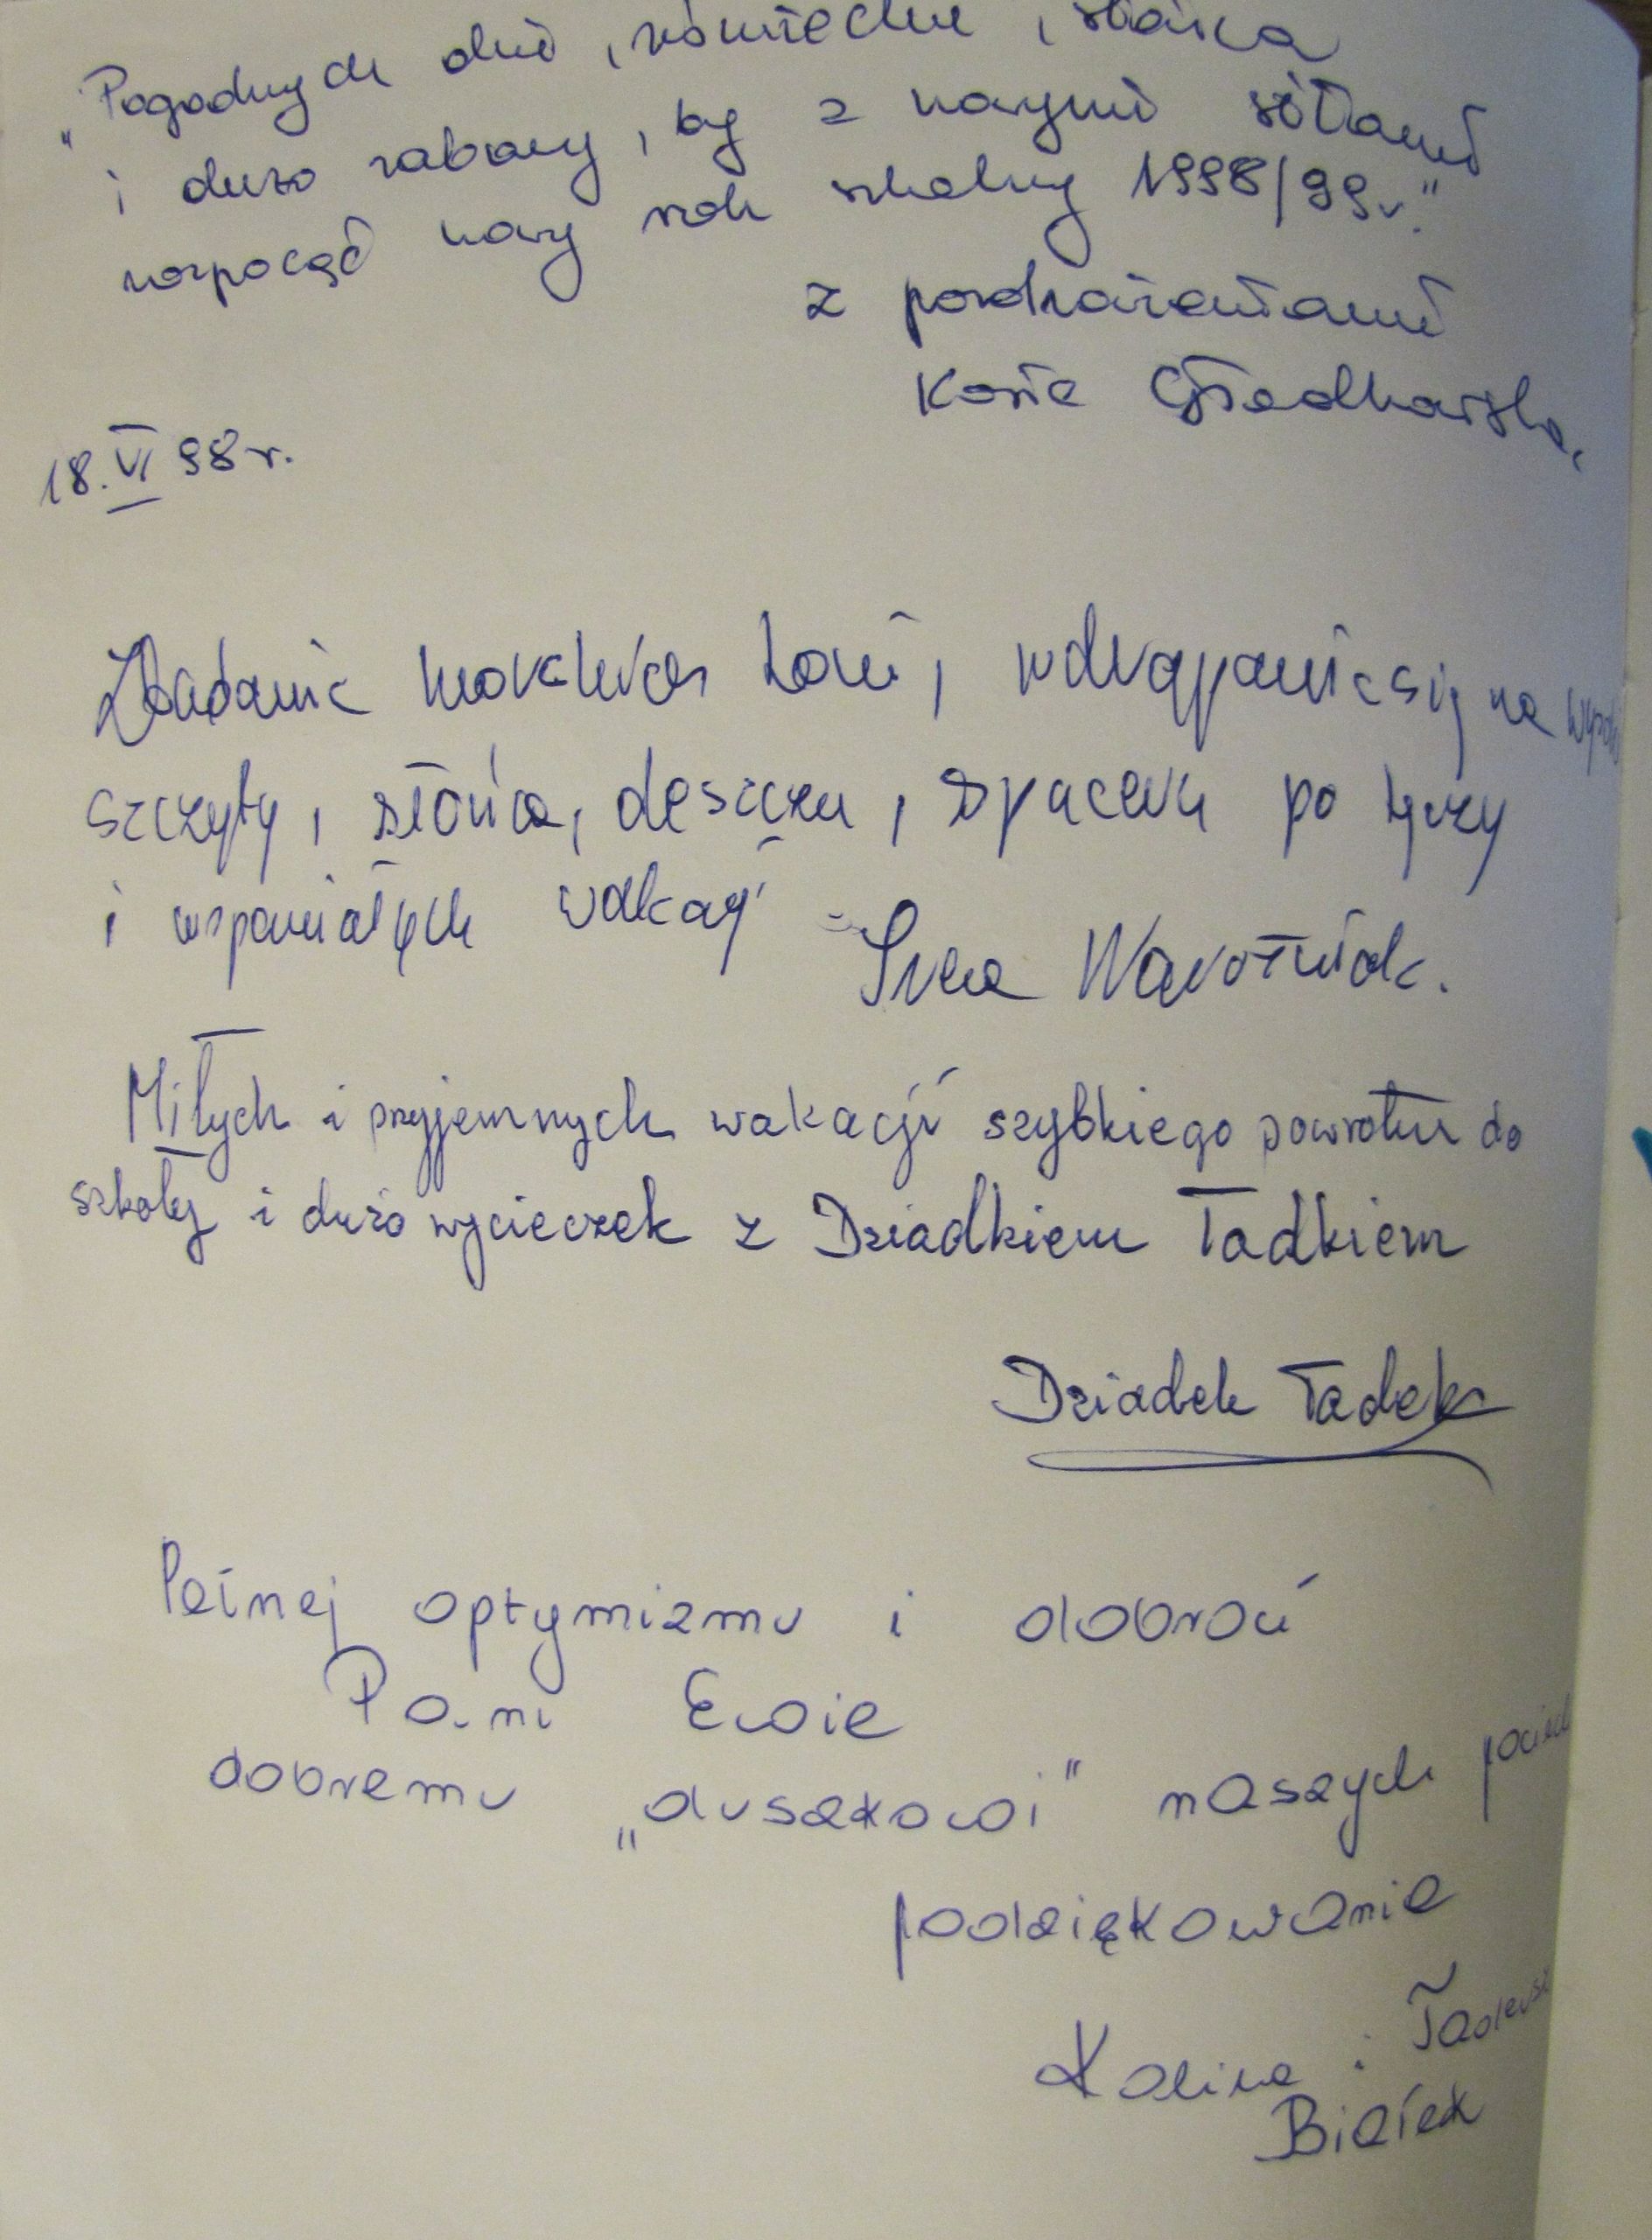 "Pogodnych dni, uśmiechu, słońca
i dużo zabawy, by z nowymi siłami
rozpocząć nowy rok szkolny 1998/99r."
z pozdrowieniami
18.VI 98r.
Zbadania morskich toni, wdrapania się na
szczyty, słońca, deszczu, spaceru po tęczy
i wspaniałych wakacji
Irena Wawrzniak.
Miłych i przyjemnych wakacji szybkiego powrotu do
szkoły i dużo wycieczek z Dziadkiem Tadkiem
Dziadek Tadek
Pełnej optymizmu i dobroci
Pani Ewie
dobremu „duszkowi" naszych pociech
podziękowanie
Kalina i Tadeusz
Białek